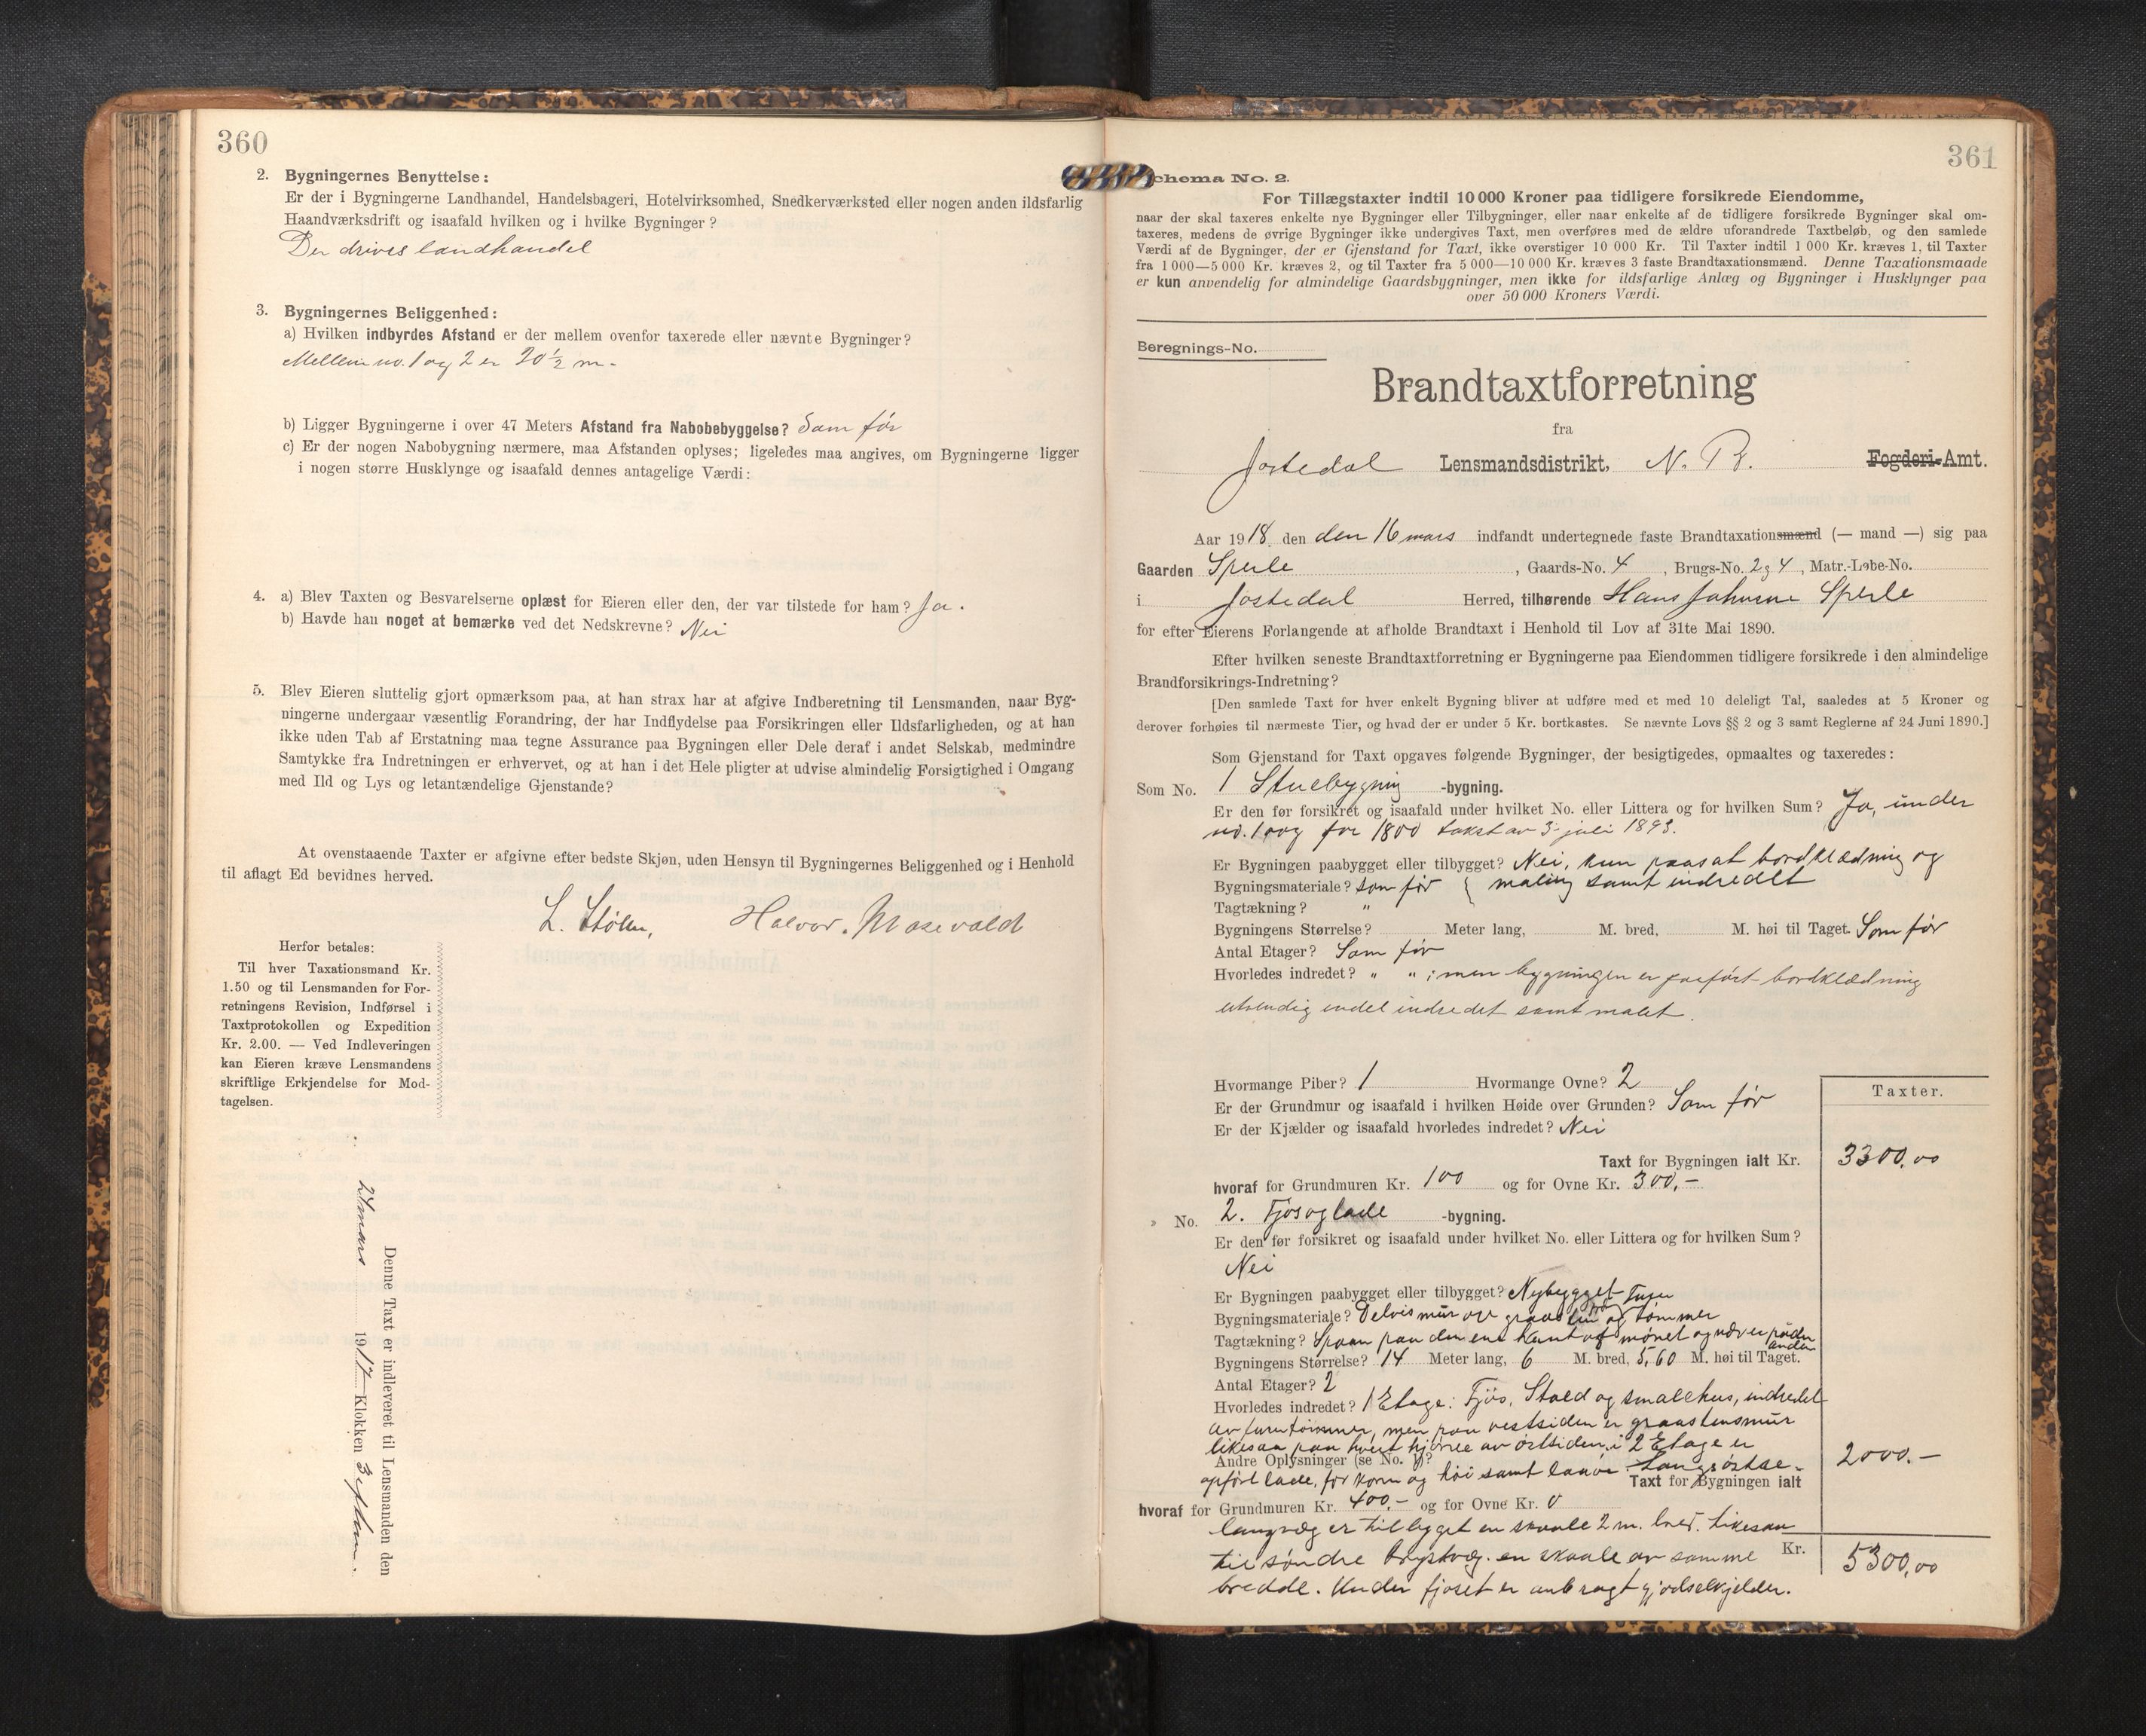 360
2. Bygningernes Benyttelse:
Er der i Bygningerne Landhandel, Handelsbageri, Hotelvirksomhed, Snedkerværksted eller nogen anden ildsfarlig
Haandværksdrift og isaafald hvilken og i hvilke Bygninger?
Der drives landhandel
3. Bygningernes Beliggenhed:
a) Hvilken indbyrdes Afstand er der mellem ovenfor taxerede eller nævnte Bygninger?
Mellem no. 1 og 2 er 20 1/2 m.
b) Ligger Bygningerne i over 47 Meters Afstand fra Nabobebyggelse? Som før
c) Er der nogen Nabobygning nærmere, maa Afstanden oplyses; ligeledes maa angives, om Bygningerne ligger
i nogen større Husklynge og isaafald dennes antagelige Værdi:
4. a) Blev Taxten og Besvarelserne oplæst for Eieren eller den, der var tilstede for ham? Ja.
b) Havde han noget at bemærke ved det Nedskrevne? Nei
5. Blev Eieren sluttelig gjort opmærksom paa, at han strax har at afgive Indberetning til Lensmanden, naar Byg-
ningerne undergaar væsentlig Forandring, der har Indflydelse paa Forsikringen eller Ildsfarligheden, og at han
ikke uden Tab af Erstatning maa tegne Assurance paa Bygningen eller Dele deraf i andet Selskab, medmindre
Samtykke fra Indretningen er erhvervet, og at han i det Hele pligter at udvise almindelig Forsigtighed i Omgang
med Ild og Lys og letantændelige Gjenstande?
At ovenstaaende Taxter er afgivne efter bedste Skjøn, uden Hensyn til Bygningernes Beliggenhed og i Henhold
til aflagt Ed bevidnes herved.
L. Stølen, Halvor. Mosevold
Herfor betales:
Til hver Taxationsmand Kr.
1.50 og til Lensmanden for For-
retningens Revision, Indførsel i
Taxtprotokollen og Expedition
Kr. 2.00. — Ved Indleveringen
kan Eieren kræve Lensmandens
skriftlige Erkjendelse for Mod-
tagelsen.
Denne Taxt er indleveret til Lensmanden den
24 mars 1917 Klokken 3 eftm.
361
chema No. 2.
For Tillægstaxter indtil 10 000 Kroner paa tidligere forsikrede Eiendomme,
naar der skal taxeres enkelte nye Bygninger eller Tilbygninger, eller naar enkelte af de tidligere forsikrede Bygninger skal om-
taxeres, medens de øvrige Bygninger ikke undergives Taxt, men overføres med de ældre uforandrede Taxtbeløb, og den samlede
Værdi af de Bygninger, der er Gjenstand for Taxt, ikke overstiger 10 000 Kr. Til Taxter indtil 1 000 Kr. kræves 1, til Taxter
fra 1 000—5 000 Kr. kræves 2, og til Taxter fra 5 000—10 000 Kr. kræves 3 faste Brandtaxationsmænd. Denne Taxationsmaade
er kun anvendelig for almindelige Gaardsbygninger, men ikke for ildsfarlige Anlæg og Bygninger i Husklynger paa
over 50 000 Kroners Værdi.
Beregnings-No.
Brandtaxtforretning
fra
Jostedal Lensmandsdistrikt, N. B. Fogderi-Amt.
Aar 1918. den den 16 mars indfandt undertegnede faste Brandtaxationsmænd (— mand —) sig paa
Gaarden Sperle, Gaards-No. 4, Brugs-No. 2 og 4, Matr.-Løbe-No.
i Jostedal Herred, tilhørende Hans Johnsen Sperle
for efter Eierens Forlangende at afholde Brandtaxt i Henhold til Lov af 31te Mai 1890.
Efter hvilken seneste Brandtaxtforretning er Bygningerne paa Eiendommen tidligere forsikrede i den almindelige
Brandforsikrings-Indretning?
[Den samlede Taxt for hver enkelt Bygning bliver at udføre med et med 10 deleligt Tal, saaledes at 5 Kroner og
derover forhøies til nærmeste Tier, og hvad der er under 5 Kr. bortkastes. Se nævnte Lovs §§ 2 og 3 samt Reglerne af 24 Juni 1890.]
Som Gjenstand for Taxt opgaves følgende Bygninger, der besigtigedes, opmaaltes og taxeredes:
Som No. 1 Stuebygning -bygning.
Er den før forsikret og isaafald under hvilket No. eller Littera og for hvilken Sum? Ja, under
no. 1 og for 1800 takst av 3 juli 1893.
Er Bygningen paabygget eller tilbygget? Nei, kun paasat bordklædning og
Bygningsmateriale? Som før { maling samt indredet
Tagtækning? "
Bygningens Størrelse? Meter lang, M. bred, M. høi til Taget. Som før
Antal Etager? Som før
Hvorledes indredet? " " ; men bygningen er paaført bordklædning
utvendig endel indredet samt malet.
Hvormange Piber? 1 Hvormange Ovne? 2
Er der Grundmur og isaafald i hvilken Høide over Grunden? Som før
Er der Kjælder og isaafald hvorledes indredet? Nei
Taxter.
Taxt for Bygningen ialt Kr. 3300,00
hvoraf for Grundmuren Kr. 100 og for Ovne Kr. 300,-
» No. 2. Fjøs og lade -bygning.
Er den før forsikret og isaafald under hvilket No. eller Littera og for hvilken Sum?
Nei
Er Bygningen paabygget eller tilbygget? Nybygget
Bygningsmateriale? Delvis mur av graasten og furu tømmer
Tagtækning? Spaan paa den ene kant af mønet og næver paa den anden
Bygningens Størrelse? 14 Meter lang, 6 M. bred, 5,60 M. høi til Taget.
Antal Etager? 2
Hvorledes indredet? 1 Etage: Fjøs, Stald og smalehus, indredet
av furutømmer, men paa vestsiden er graastensmur
likesaa paa hvert hjørne av østsiden, i 2 Etage er
Andre Oplysninger (se No. )?
opført lade, for korn og høi samt laave. Langs østse-
Taxt for Bygningen ialt 2000.-
hvoraf for Grundmuren Kr. 400,- og for Ovne Kr. 0
langvæg er tilbygget en skaale 2 m. bred. Likesaa
til søndre brystvæg. en skaale av samme Kr. 5300,00
bredde. Under fjøset er anbragt gjødselkjelder.